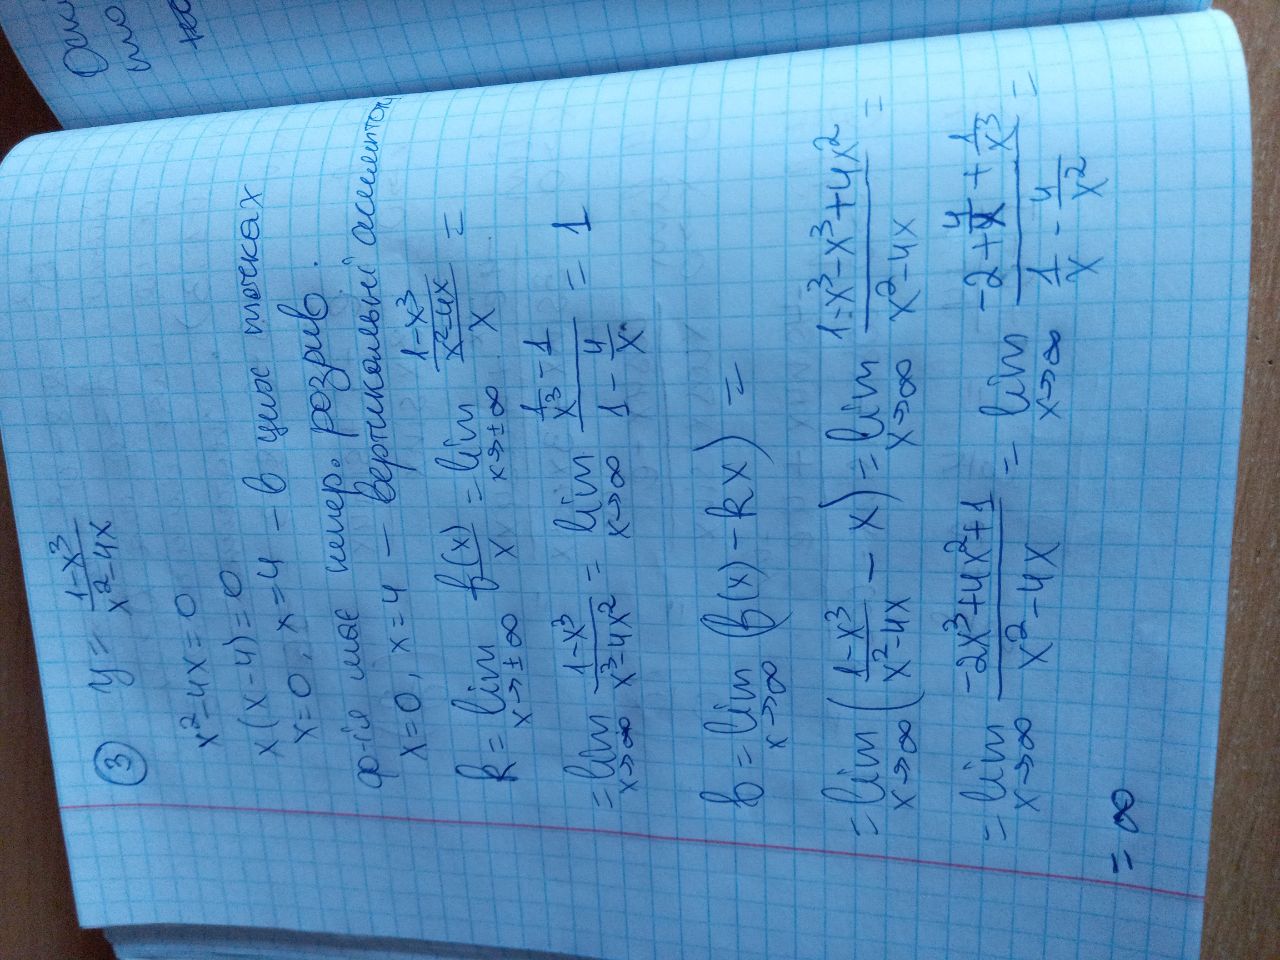 ③ y = (1-x³)/(x²-4x)
x²-4x=0
x(x-4)=0
x=0, x=4 - в цих точках
ф-ія має непер. розрив.
x=0, x=4 - вертикальні асимптоти
k = lim x→±∞ f(x)/x = lim x→±∞ ((1-x³)/(x²-4x))/x =
= lim x→∞ (1-x³)/(x³-4x²) = lim x→∞ (1/x³ - 1)/(1 - 4/x) = 1
b = lim x→∞ f(x) - kx) =
= lim x→∞ ((1-x³)/(x²-4x) - x) = lim x→∞ (1-x³-x³+4x²)/(x²-4x) =
= lim x→∞ (-2x³+4x²+1)/(x²-4x) = lim x→∞ (-2 + 4/x + 1/x³)/(1/x - 4/x²) =
= ∞